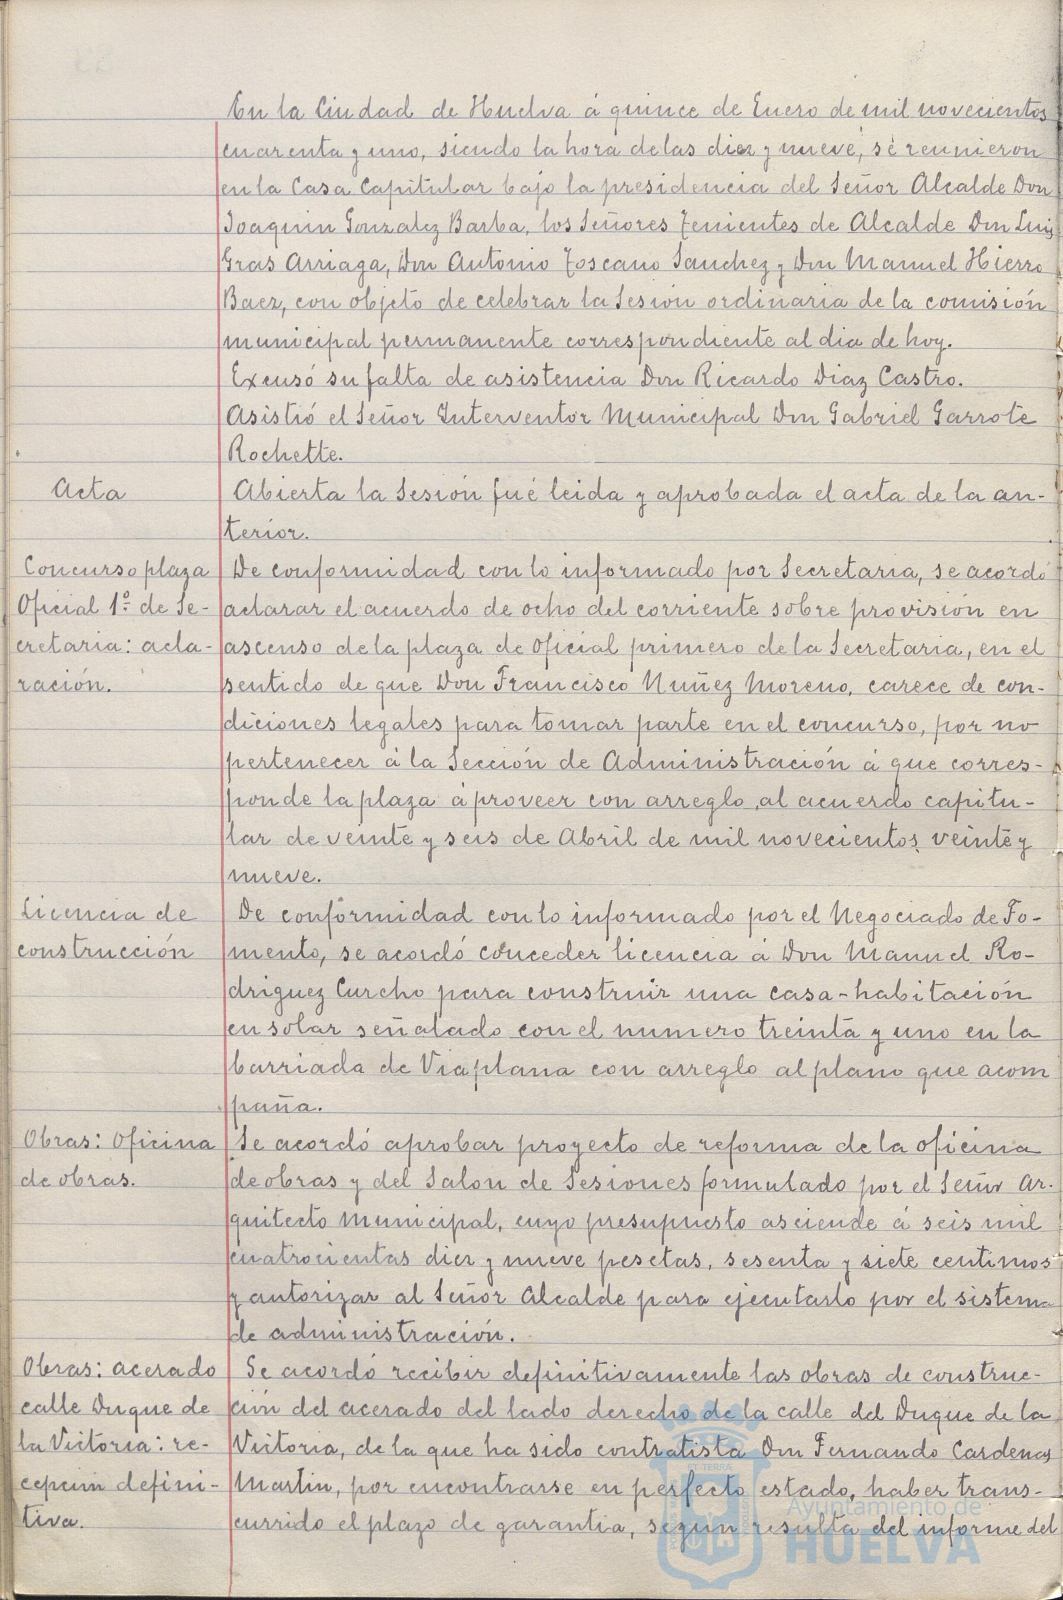 En la Ciudad de Huelva á quince de Enero de mil novecientos
cuarenta y uno, siendo la hora de las diez y nueve, se reunieron
en la Casa Capitular bajo la presidencia del Señor Alcalde Don
Joaquin Gonzalez Barba, los Señores Tenientes de Alcalde Don Luis
Gras Arriaga, Don Antonio Toscano Sanchez y Don Manuel Hierro
Baez, con objeto de celebrar la Sesión ordinaria de la comisión
municipal permanente correspondiente al dia de hoy.
Excusó su falta de asistencia Don Ricardo Diaz Castro.
Asistió el Señor Interventor Municipal Don Gabriel Garrote
Rochette.
Acta
Abierta la Sesión fué leida y aprobada el acta de la an-
terior.
Concurso plaza
Oficial 1º de Se-
cretaria: acla-
ración.
De conformidad con lo informado por Secretaria, se acordó
aclarar el acuerdo de ocho del corriente sobre provisión en
ascenso de la plaza de oficial primero de la Secretaria, en el
sentido de que Don Francisco Nuñez Moreno, carece de con-
diciones legales para tomar parte en el concurso, por no
pertenecer á la Sección de Administración á que corres-
ponde la plaza á proveer con arreglo al acuerdo capitu-
lar de veinte y seis de Abril de mil novecientos veinte y
nueve.
Licencia de
construcción
De conformidad con lo informado por el Negociado de Fo-
mento, se acordó conceder licencia á Don Manuel Ro-
driguez Curcho para construir una casa-habitación
en solar señalado con el numero treinta y uno en la
barriada de Viaplana con arreglo al plano que acom
paña.
Obras: oficina
de obras.
Se acordó aprobar proyecto de reforma de la oficina
de obras y del Salon de Sesiones formulado por el Señor Ar-
quitecto Municipal, cuyo presupuesto asciende á seis mil
cuatrocientas diez y nueve pesetas, sesenta y siete centimos
y autorizar al Señor Alcalde para ejecutarlo por el sistema
de administración.
Obras: acerado
calle Duque de
la Victoria: re-
cepcion defini-
tiva.
Se acordó recibir definitivamente las obras de construc-
ción del acerado del lado derecho de la calle del Duque de la
Victoria, de la que ha sido contratista Don Fernando Cardenas
Martin, por encontrarse en perfecto estado, haber trans-
currido el plazo de garantia, segun resulta del informe del
Ayuntamiento de
HUELVA